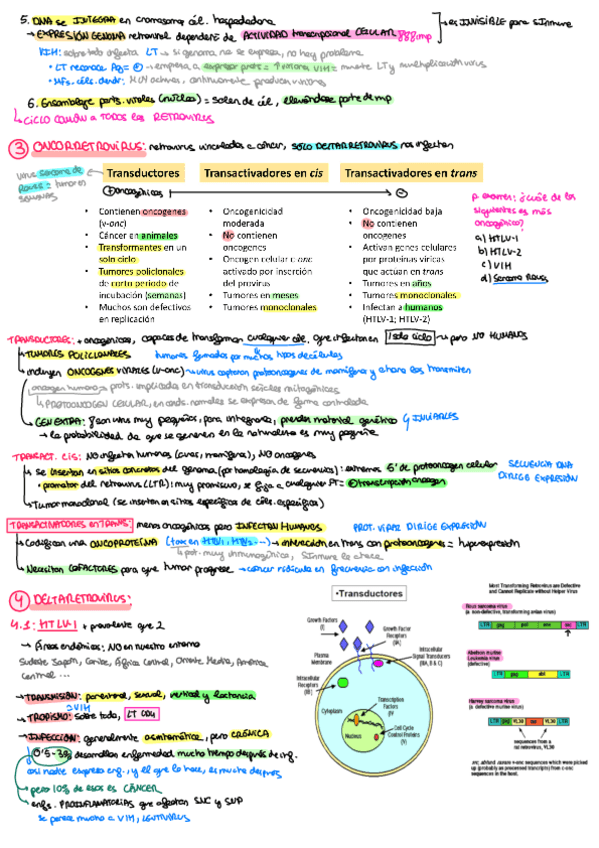 5. DNA se INTEGRA en cromosoma cél. hospedadora
→ EXPRESIÓN GENOMA retroviral dependerá de ACTIVIDAD transcripcional CELULAR
→ es INVISIBLE para Sinmune
VIH: sobre todo infecta LT → si genoma no se expresa, no hay problema
• LT reconoce Ag = → empieza a expresar prots = ↑ tomara VIH = muerte LT y multiplicación virus
• MFs, céls. dendr:
6. Ensamblaje parts. virales (núcleo) = salen de cél, llevándose parte de mp
→ CICLO COMÚN A TODOS LOS RETROVIRUS
3 ONCORRETROVIRUS: retrovirus vinculados a cáncer, SÓLO DELTARRETROVIRUS nos infectan
virus sarcoma de Rous = tumores semanas
Transductores
Transactivadores en cis
Transactivadores en trans
+ oncogénicos → −
• Contienen oncogenes (v-onc)
• Cáncer en animales
• Transformantes en un solo ciclo
• Tumores policlonales de corto periodo de incubación (semanas)
• Muchos son defectivos en replicación
• Oncogenicidad moderada
• No contienen oncogenes
• Oncogen celular c-onc activado por inserción del provirus
• Tumores en meses
• Tumores monoclonales
• Oncogenicidad baja
• No contienen oncogenes
• Activan genes celulares por proteínas víricas que actúan en trans
• Tumores en años
• Tumores monoclonales
• Infectan a humanos (HTLV-1; HTLV-2)
P. examen: ¿cuál de los siguientes es más oncogénico?
a) HTLV-1
b) HTLV-2
c) VIH
d) Sarcoma Rous
TRANSDUCTORES: + oncogénicos, capaces de transformar cualquier cél. que infectan en 1 solo ciclo → pero NO HUMANOS
→ TUMORES POLICLONALES tumores formados por muchos tipos de células
→ incluyen ONCOGENES VIRALES (v-onc) → virus capturan protooncogenes de mamíferos y ahora los transmiten
oncogen humano → prots. implicada en transducción señales mitogénicas
→ PROTOONCOGEN CELULAR, en conds. normales se expresan de forma controlada
→ GEN EXTRA: son virus muy pequeños, para integrarlo, pierden material genético INVIABLES
→ la probabilidad de que se generen en la naturaleza es muy pequeña
TRANSACT. cis: NO infectan humanos (aves, mamíferos), NO oncogenes
→ se insertan en sitios concretos del genoma (por homología de secuencias): extremos 5' de protooncogen celular
SECUENCIA DNA DIRIGE EXPRESIÓN
• promotor del retrovirus (LTR): muy promiscuo, se fija a cualquier FT = + transcripción oncogen
→ Tumor monoclonal (se insertan en sitios específicos de céls. específicas)
TRANSACTIVADORES en TRANS: menos oncogénicos pero INFECTAN HUMANOS PROT. VIRAL DIRIGE EXPRESIÓN
→ Codifican una ONCOPROTEÍNA (tax en HTLV-1, HTLV-2 ...) → interacción en trans con protooncogenes = hiperexpresión
→ prot. muy inmunogénica, Sinmune la ataca
→ Necesitan COFACTORES para que tumor progrese → cáncer ridícula en frecuencia con infección
4 DELTARETROVIRUS:
4.1: HTLV-1 + prevalente que 2
→ Áreas endémicas: NO en nuestro entorno
Sudeste Japón, Caribe, África Central, Oriente Medio, América Central ...
→ TRANSMISIÓN: parenteral, sexual, vertical y lactancia
= VIH
→ TROPISMO: sobre todo, LT CD4
→ INFECCIÓN: generalmente asintomática, pero CRÓNICA
0'5-3% desarrollan enfermedad mucho tiempo después de inf.
casi nadie expresa enf., y el que lo hace, es mucho después
→ pero 10% de esos es CÁNCER
→ enfs. PROINFLAMATORIAS que afectan SNC y SNP
se parece mucho a VIH, LENTIVIRUS
•Transductores
Growth Factors (I)
Growth Factor Receptors (IIA)
Plasma Membrane
Intracellular Signal Transducers (IIIA, B & C)
Intracellular Receptors (IIB)
Cytoplasm
Transcription Factors (IV)
Nucleus
Cell Cycle Control Proteins (V)
Most Transforming Retrovirus are Defective and Cannot Replicate without Helper Virus
Rous sarcoma virus
(a non-defective, transforming avian virus)
LTR gag pol env src LTR
Abelson murine Leukemia virus
(defective)
LTR gag abl LTR
Harvey sarcoma virus
(a defective murine virus)
LTR gag VL30 ras VL30 LTR
sequences from a rat retrovirus, VL30
src, abl and ras are v-onc sequences which were picked up (probably as processed transcripts) from c-onc sequences in the host.